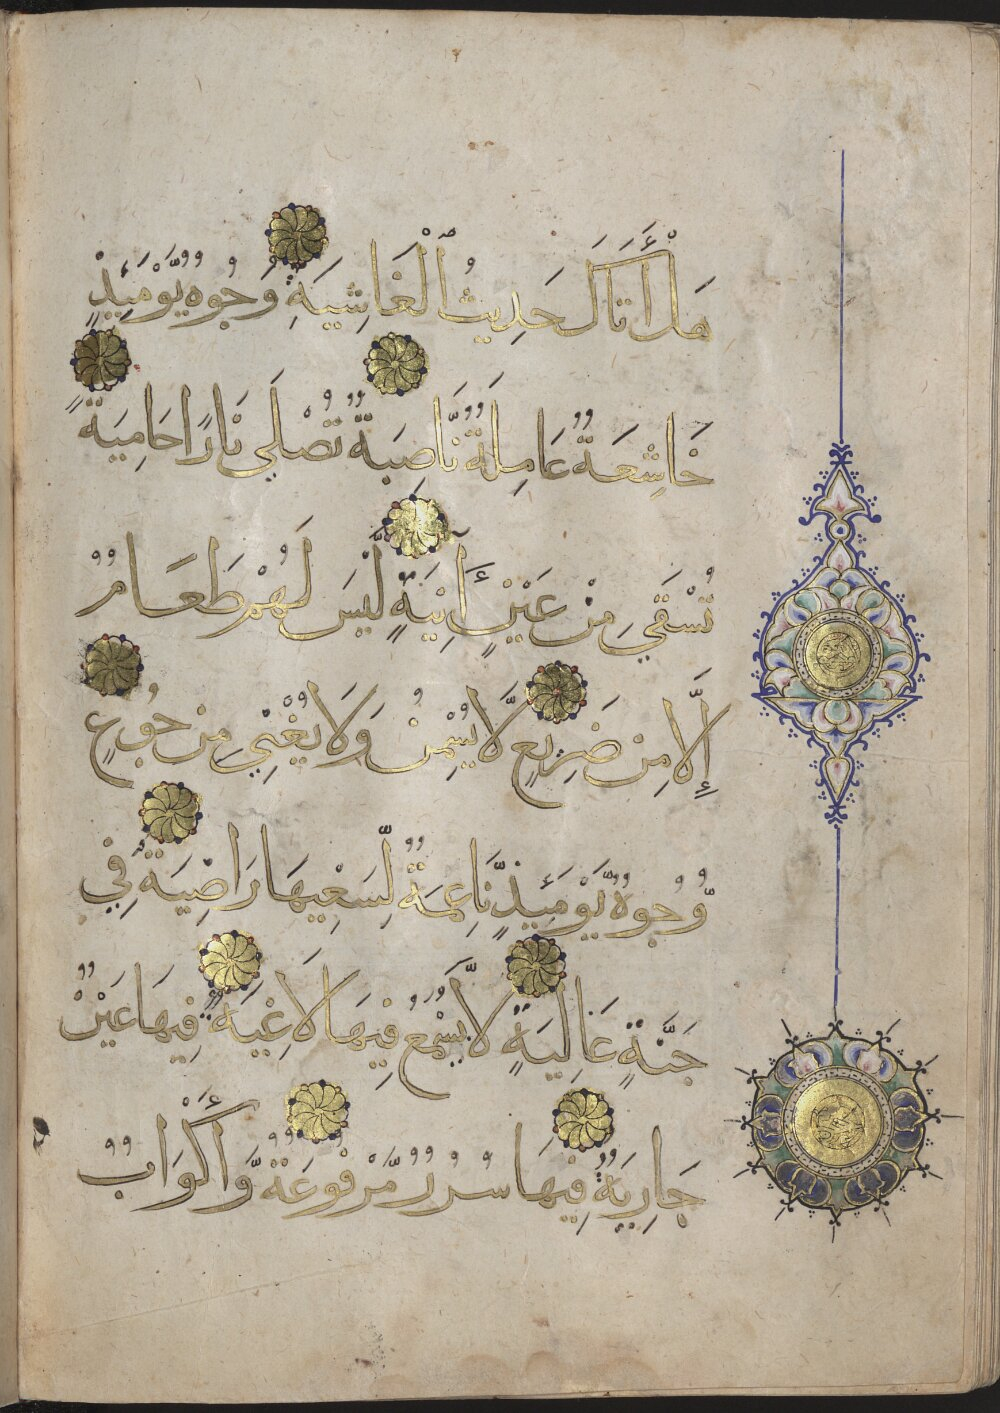 هَلْ أَتَاكَ حَدِيثُ ٱلْغَاشِيَةِ وُجُوهٌ يَوْمَئِذٍ
خَاشِعَةٌ عَامِلَةٌ نَّاصِبَةٌ تُصْلَى نَارًا حَامِيَةً
تُسْقَى مِنْ عَيْنٍ آنِيَةٍ لَّيْسَ لَهُمْ طَعَامٌ
إِلَّا مِن ضَرِيعٍ لَّا يُسْمِنُ وَلَا يُغْنِي مِن جُوعٍ
وُّجُوهٌ يَوْمَئِذٍ نَّاعِمَةٌ لِّسَعْيِهَا رَاضِيَةٌ فِي
جَنَّةٍ عَالِيَةٍ لَّا يُسْمَعُ فِيهَا لَاغِيَةٌ فِيهَا عَيْنٌ
جَارِيَةٌ فِيهَا سُرُرٌ مَّرْفُوعَةٌ وَّأَكْوَابٌ